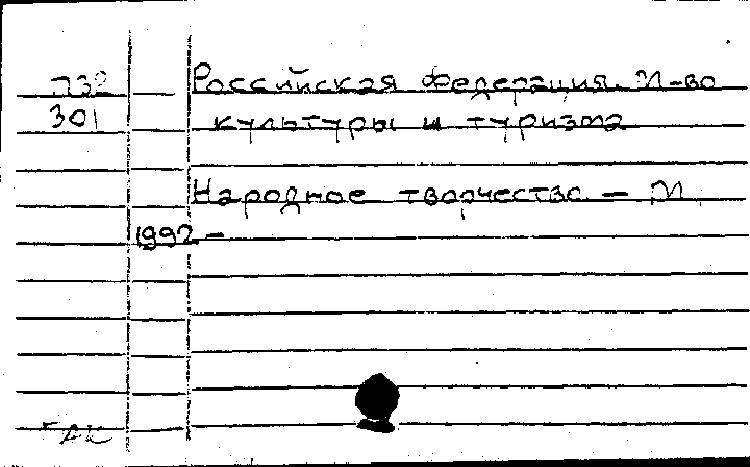 П32 Российская Федерация. М-во
301 культуры и туризма
Народное творчество – М
1992 –